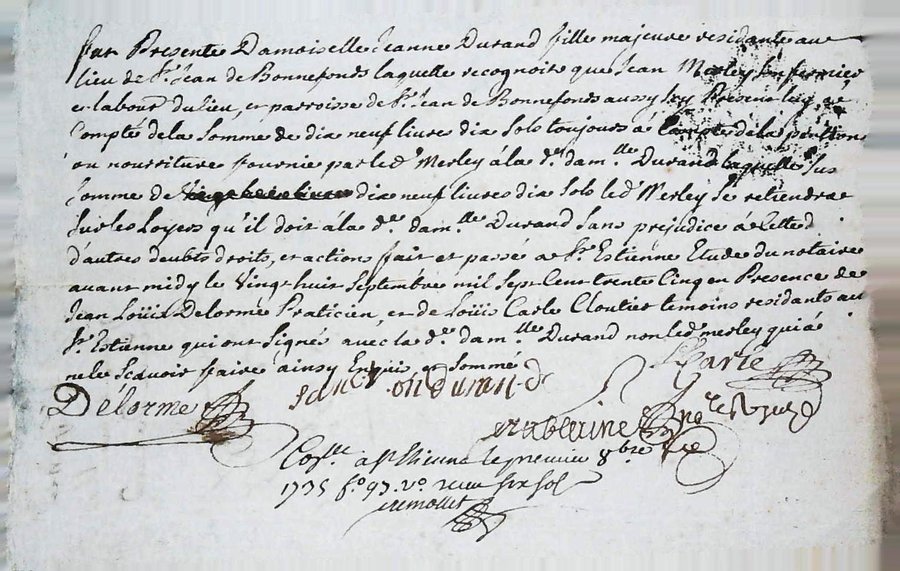 fut Presente Damoiselle Jeanne Durand fille majeure residante au
lieu de St. Jean de Bonnefonds laquelle recognoit que Jean Merley son fermier
et labour. dulieu, et parroisse de St. Jean de Bonnefonds aussy icy Present luy a
Compté dela Somme de dix neuf livres dix Sols toujours à Compte dela pention
ou nourriture fournie par led. Merley àla de. dam.lle Durand laquelle sus
Somme de dix neuf livres dix Sols led. Merley Se retiendra
Sur les Loyers qu'il doit àla de. dam.lle Durand Sans prejudice à Elle
d'autres deubts droits, et actions fait et passé a St. Estienne Etude du notaire
avant midy le Vingt huit Septembre mil Sept Cent trente Cinq en Presence de
Jean Loüis Delorme Praticien, et de Loüis Carle Cloutier temoins residants au
St. Estienne qui ont Signés avec la de. dam.lle Durand non led. merley qui à
ne le Scavoir faire ainsy Enquis et Sommé
Delorme Durand Carle
not.re Royal
Con.lle a St Etienne le premier 8bre
1735 fo. 97. vo. recu six sols